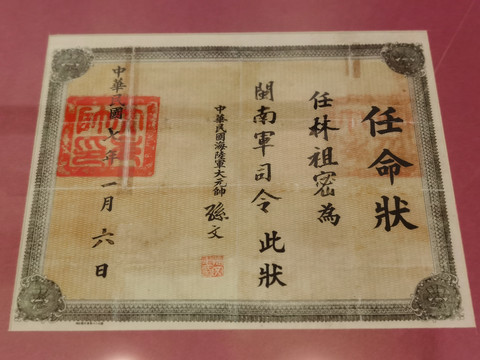 任命狀
任林祖密為
閩南軍司令此狀
中華民國海陸軍大元帥 孫文
中華民國七年一月六日